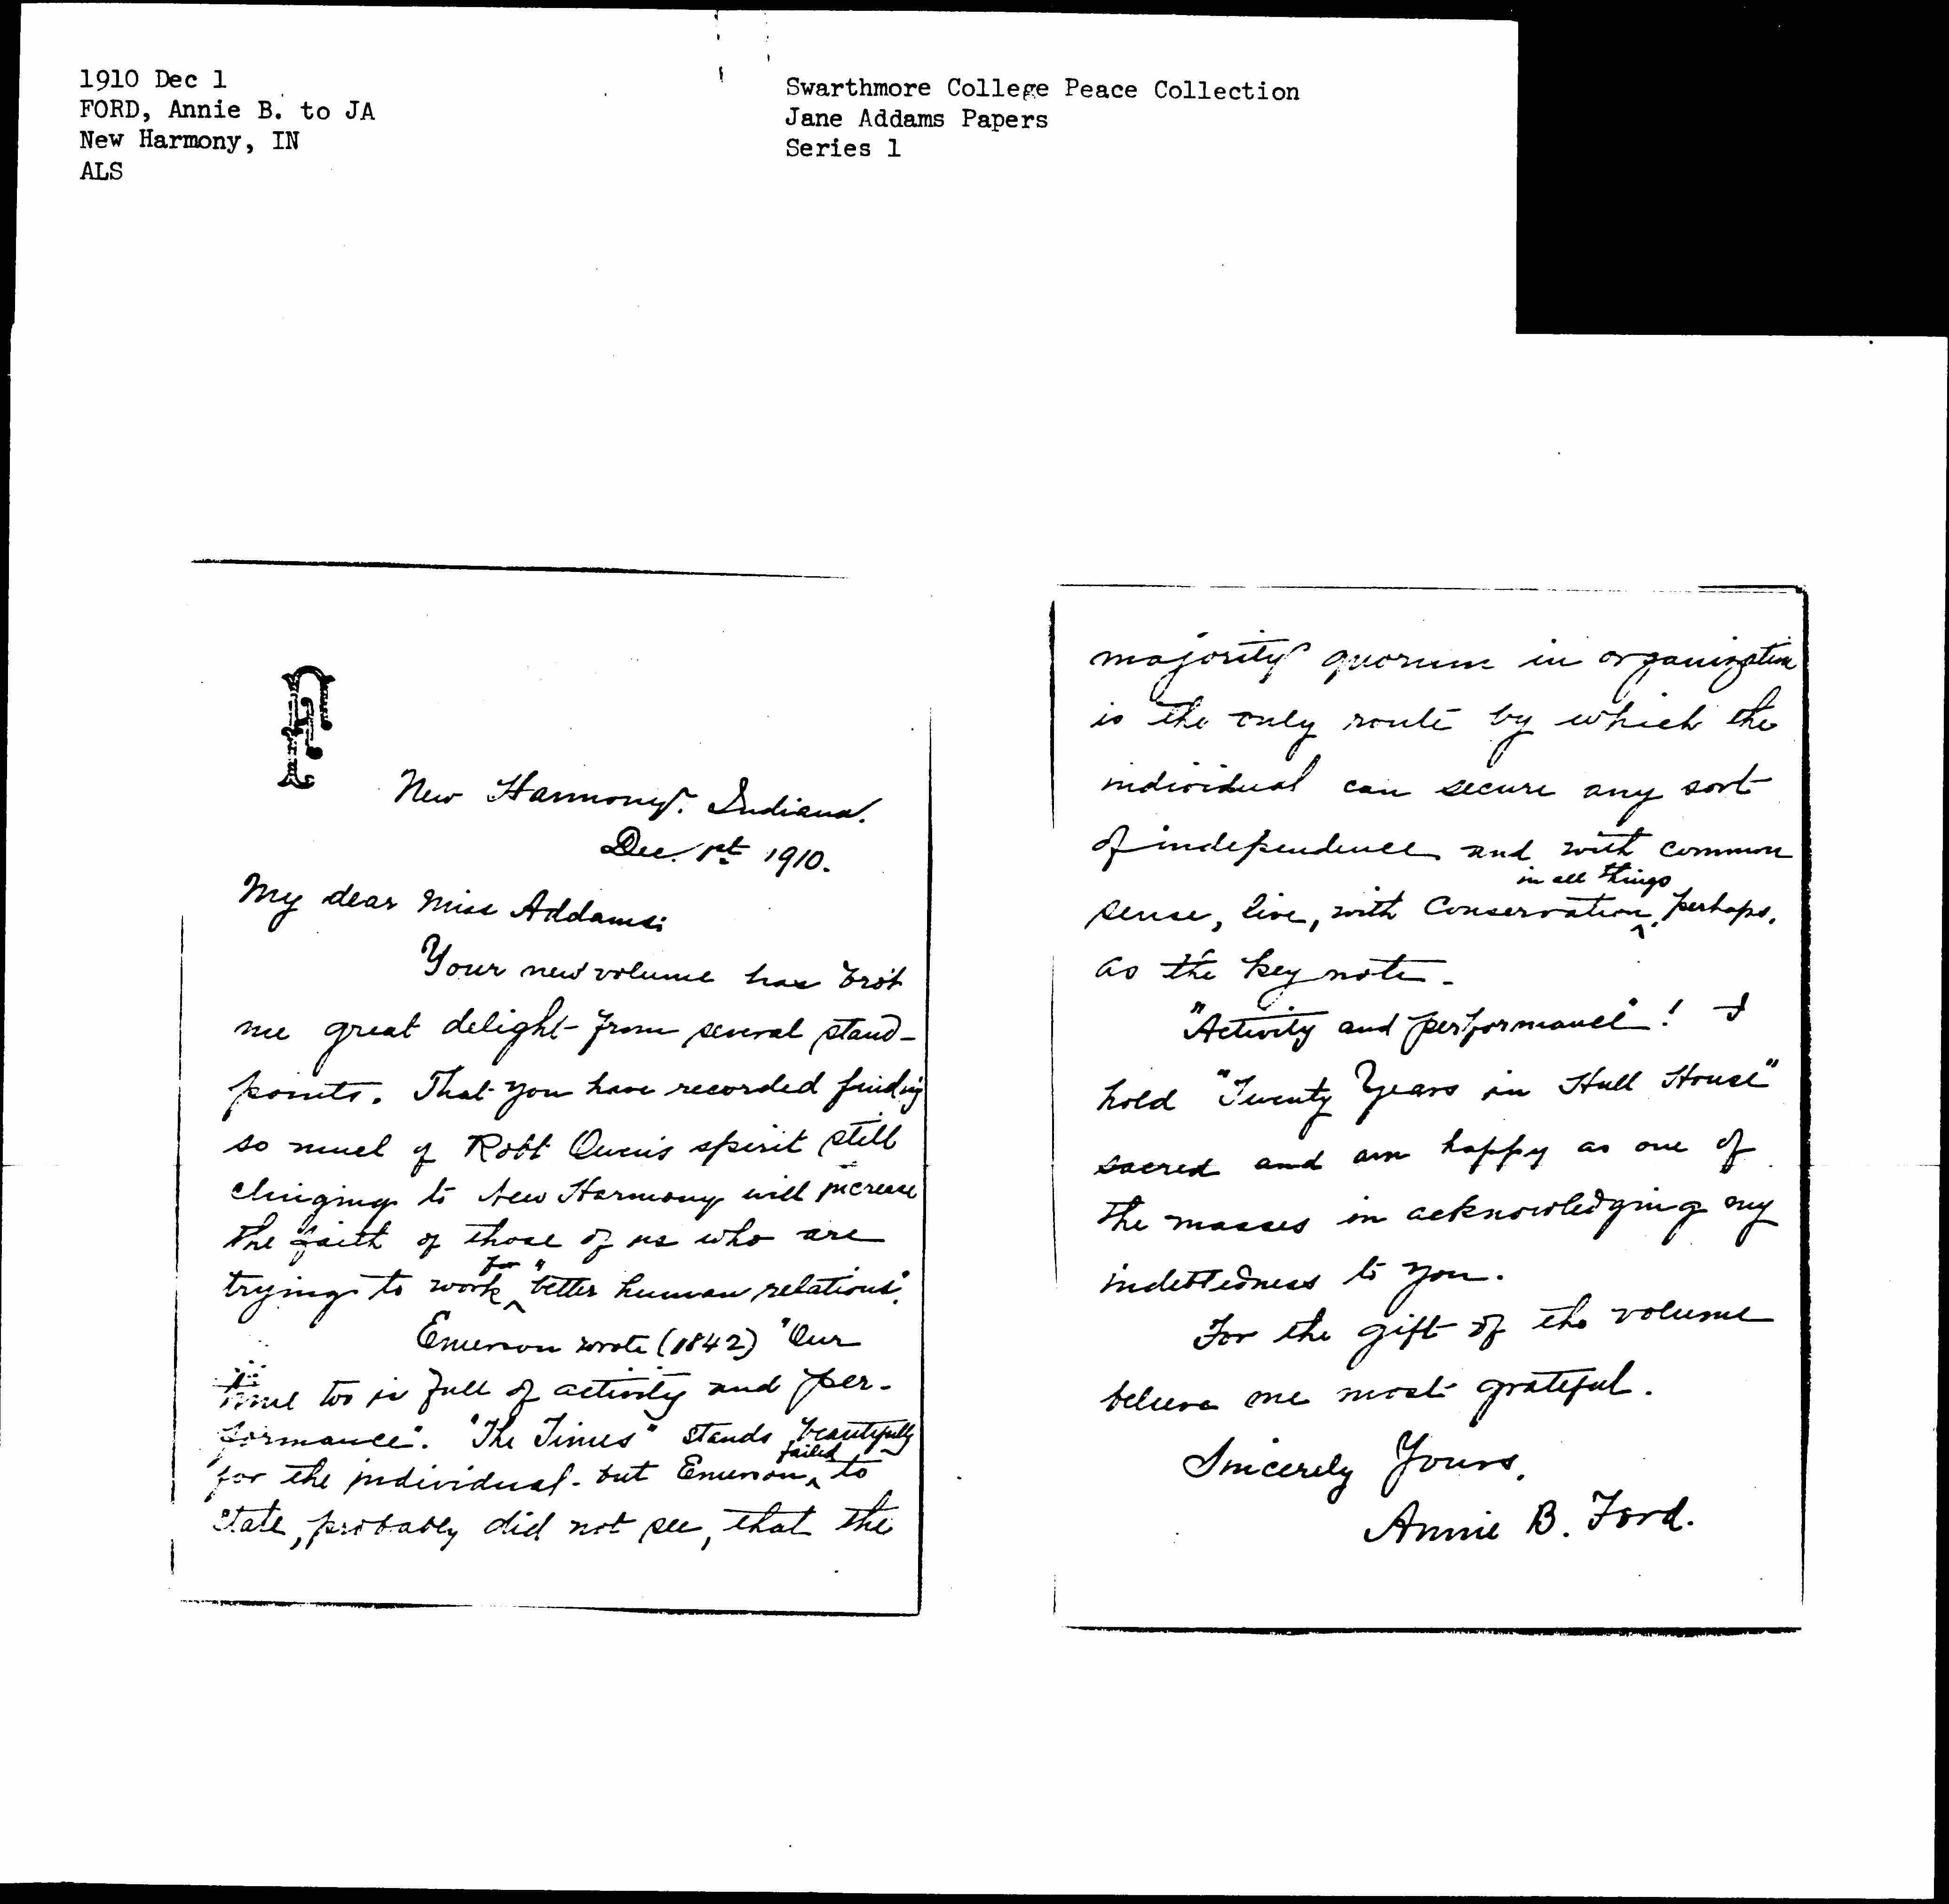 1910 Dec 1
FORD, Annie B. to JA
New Harmony, IN
ALS
Swarthmore College Peace Collection
Jane Addams Papers
Series 1
F
New Harmony. Indiana.
Dec. 1st 1910.
My dear Miss Addams:
Your new volume has brot
me great delight - from several stand-
points. That you have recorded finding
so much of Robt Owen's spirit still
clinging to New Harmony will increase
the faith of those of us who are
trying to work for "better human relations".
Emerson wrote (1842) "Our
time too is full of activity and per-
formance". "The Times" stands beautifully
for the individual - but Emerson failed to
state, probably did not see, that the
majority quorum in organization
is the only route by which the
individual can secure any sort
of independence and with common
sense, live, with Conservation in all things, perhaps,
as the key note -
"Activity and performance"! I
hold "Twenty Years in Hull House"
sacred and am happy as one of
the masses in acknowledging my
indebtedness to you.
For the gift of the volume
believe me most grateful.
Sincerely Yours,
Annie B. Ford.